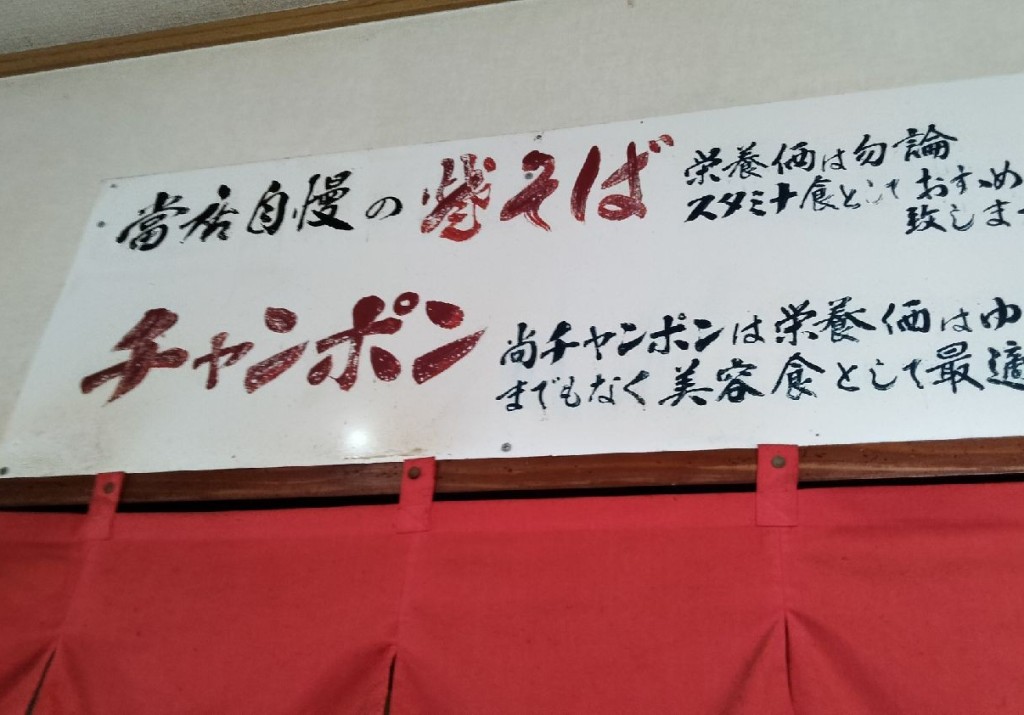 當店自慢の焼そば
栄養価は勿論
スタミナ食としておすゝめ
致しま
チャンポン
尚チャンポンは栄養価は
までもなく美容食として最適